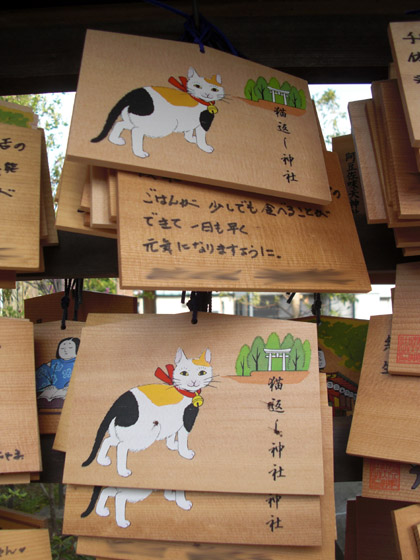 猫返し神社
ごはんが 少しでも 食べることが
できて 一日も早く
元気になりますように。
猫返し神社
神社